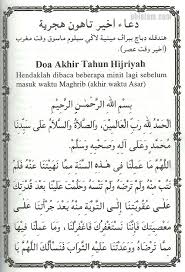 دعاء أخير تاهون هجرية
هندقله دباچ ببراف مينيت لاݢي سبلوم ماسوق وقت مغرب
(أخير وقت عصر)
Doa Akhir Tahun Hijriyah
Hendaklah dibaca beberapa minit lagi sebelum
masuk waktu Maghrib (akhir waktu Asar)
بِسْمِ اللهِ الرَّحْمٰنِ الرَّحِيْمِ
اَلْحَمْدُ للهِ رَبِّ الْعَالَمِيْنَ، وَالصَّلاَةُ وَالسَّلاَمُ عَلَى سَيِّدِنَا
مُحَمَّدٍ وَعَلَى آلِهِ وَصَحْبِهِ وَسَلَّمَ.
اَللّٰهُمَّ مَا عَمِلْنَا فِي هٰذِهِ السَّنَةِ مِمَّا نَهَيْتَنَا عَنْهُ فَلَمْ نَتُبْ
مِنْهُ وَلَمْ تَرْضَهُ وَلَمْ تَنْسَهُ وَحَلُمْتَ عَلَيْنَا بَعْدَ قُدْرَتِكَ
عَلَى عُقُوْبَتِنَا وَدَعَوْتَنَا إِلَى التَّوْبَةِ مِنْهُ بَعْدَ جَرَاءَتِنَا عَلَى
مَعْصِيَتِكَ فَإِنَّا نَسْتَغْفِرُكَ فَاغْفِرْلَنَا، وَمَا عَمِلْنَا فِيْهَا
مِمَّا تَرْضَاهُ وَوَعَدْتَنَا عَلَيْهِ الثَّوَابَ فَنَسْأَلُكَ اللّٰهُمَّ يَا